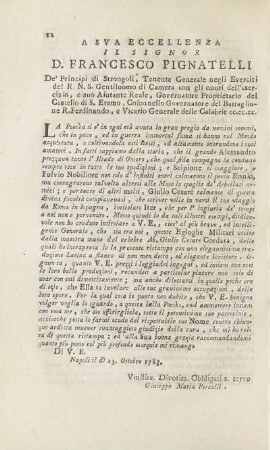 12
A SUA ECCELLENZA
IL SIGNOR
D. FRANCESCO PIGNATELLI
De' Principi di Strongoli, Tenente Generale negli Eserciti
del R. N. S. Gentiluomo di Camera con gli onori dell'eser-
cizio, e suo Ajutante Reale, Governatore Proprietario del
Castello di S. Eramo, Colonnello Governatore del Battaglio-
ne R. Ferdinando, e Vicario Generale delle Calabrie ec.ec.ec.
LA Poesia si è in ogni età avuta in gran pregio da uomini sommi,
che in pace, ed in guerra immortal fama si hanno nel Mondo
acquistata, e coltivandola essi stessi, ed altamente onorandone i suoi
amatori. In fatti sappiamo dalla storia, che il grande Alessandro
prezzava tanto l'Iliade di Omero, che qual fida compagna la condusse
sempre seco in tutte le sue spedizioni; e Scipione il maggiore, e
Fulvio Nobiliore non solo d'infiniti onori colmarono il poeta Ennio,
ma consagrarono talvolta altresì alle Muse le spoglie de' debellati ne-
mici, e de' trionfi conseguiti. Giulio Cesare calmato di questa
divina facoltà conoscitore, che scriver volle in versi il suo viaggio
da Roma in Ispagna, intitolato Iter, che per l'ingiuria de' tempi
a noi non è pervenuto. Mosso quindi io da tali illustri esempj, dubitar
non ho creduto intitolare a V. E., cioè al più bravo, ed intelli-
gente Generale, che sia tra noi, queste Egloghe Militari uscite
dalla maestra mano del celebre ab. Giulio Cesare Cordara, delle
quali ho intrapresa la presente ristampa con una elegantissima tra-
duzione Latina a fianco di non men dotto, ed elegante Scrittore. Ag-
giunga, quanto V. E. prezzi i leggiadri ingegni, ed inviti con essi
le loro belle produzioni, recandosi a particolar piacere non solo di
usar con essi domesticamente; ma anche dilettarsi in quelle poche ore
di ozio, che Ella ha involare alle sue gravissime occupazioni, delle
loro opere. Per la qual cosa io punto non dubito, che V. E. benigna
volger voglia lo sguardo, a queste bella Poesie, ed ammettere insiem
con esse me, che un offeriscigliele, sotto il suo patrocinio,
acciocchè possa io farmi scudo del rispettabile suo Nome contra chiun-
que ardisca muover svantaggioso giudizio dalla cura, che mi ho tol-
ta di questa ristampa; ed alla sua buona grazia raccomandandomi
quanto più posso col più profondo inchino mi rimango
Di V. E.
Napoli il dì 23. Ottobre 1783.
Umiliss. Divotiss. Obbligatiss. servo
Giuseppe Maria Porcelli.